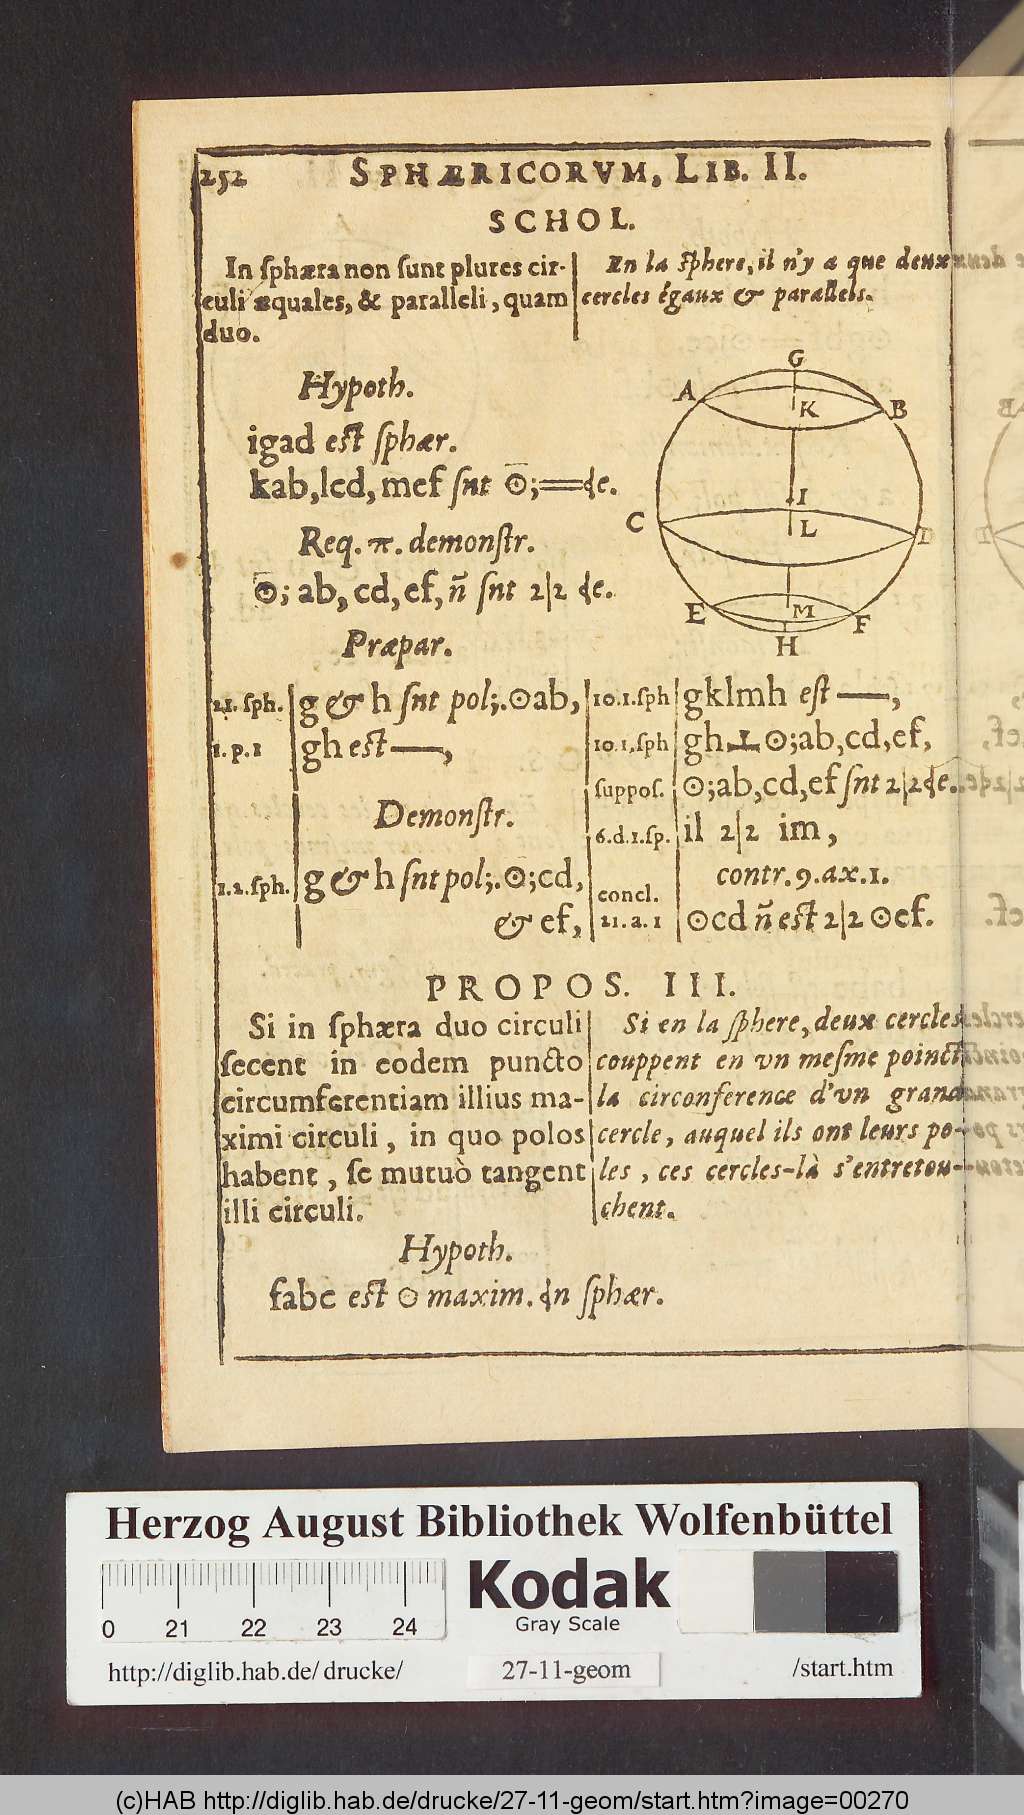 252 SPHÆRICORVM, LIB. II.
SCHOL.
In sphæra non sunt plures cir-
culi æquales, & paralleli, quam
duo.
En la sphere, il n'y a que deux
cercles égaux & parallels.
Hypoth.
igad est sphær.
kab, lcd, mef snt ⊙; == de.
Req. π. demonstr.
⊙; ab, cd, ef, ñ snt 2|2 de.
Præpar.
21. sph. g & h snt pol;. ⊙ab,
1. p. 1 gh est —,
Demonstr.
1. 2. sph. g & h snt pol;. ⊙; cd,
& ef,
10. 1. sph gklmh est —,
10. 1. sph gh ⊥ ⊙; ab, cd, ef,
suppos. ⊙; ab, cd, ef snt 2|2 de.
6. d. 1. sp. il 2|2 im,
contr. 9. ax. 1.
concl.
21. a. 1 ⊙cd ñ est 2|2 ⊙ef.
G
A
K
B
I
C
L
D
E
M
F
H
PROPOS. III.
Si in sphæra duo circuli
secent in eodem puncto
circumferentiam illius ma-
ximi circuli, in quo polos
habent, se mutuò tangent
illi circuli.
Si en la sphere, deux cercles
couppent en vn mesme poinct
la circonference d'vn grand
cercle, auquel ils ont leurs po-
les, ces cercles-là s'entretou-
chent.
Hypoth.
fabc est ⊙ maxim. dn sphær.
Herzog August Bibliothek Wolfenbüttel
0 21 22 23 24
Kodak
Gray Scale
http://diglib.hab.de/drucke/ 27-11-geom /start.htm
(c)HAB http://diglib.hab.de/drucke/27-11-geom/start.htm?image=00270